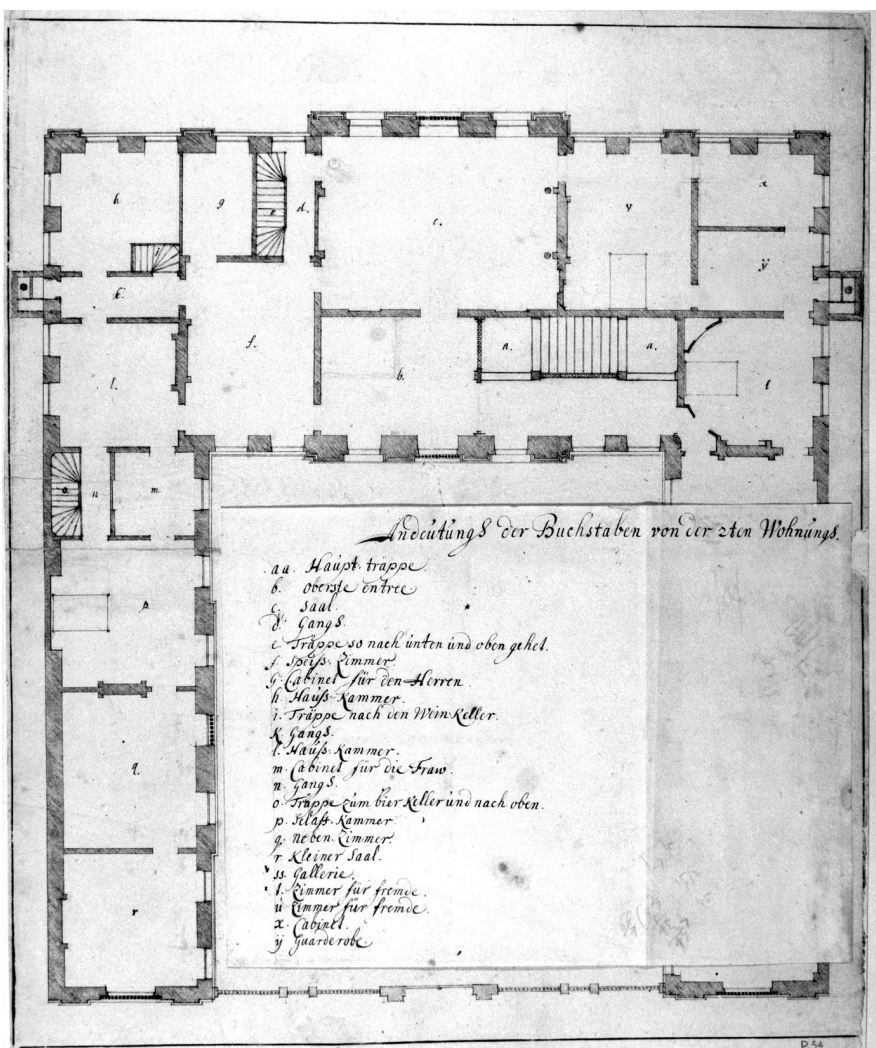 h
g
e
d.
c.
v
x
y
i
k.
f.
b.
a.
a.
t
l.
o.
n
m
p
q.
r
Andeutungs der Buchstaben von der 2ten Wohnungs.
aa. Haupt. träppe.
b. oberste entree
c. Saal.
d. Gangs.
e Träppe so nach unten und oben gehet.
f. Speiß. Zimmer.
g. Cabinet für den Herren.
h. Hauß-Kammer.
i. Träppe nach den Wein-Keller.
k. Gangs.
l. Hauß-Kammer.
m. Cabinet für die Fraw.
n. Gangs.
o. Träppe zum bier Keller und nach oben.
p. Schaff-Kammer.
q. Neben-Zimmer.
r Kleiner Saal.
ss. Gallerie.
t. Zimmer für fremde.
u Zimmer für fremde.
x. Cabinet.
y Guarderobe.
P.54